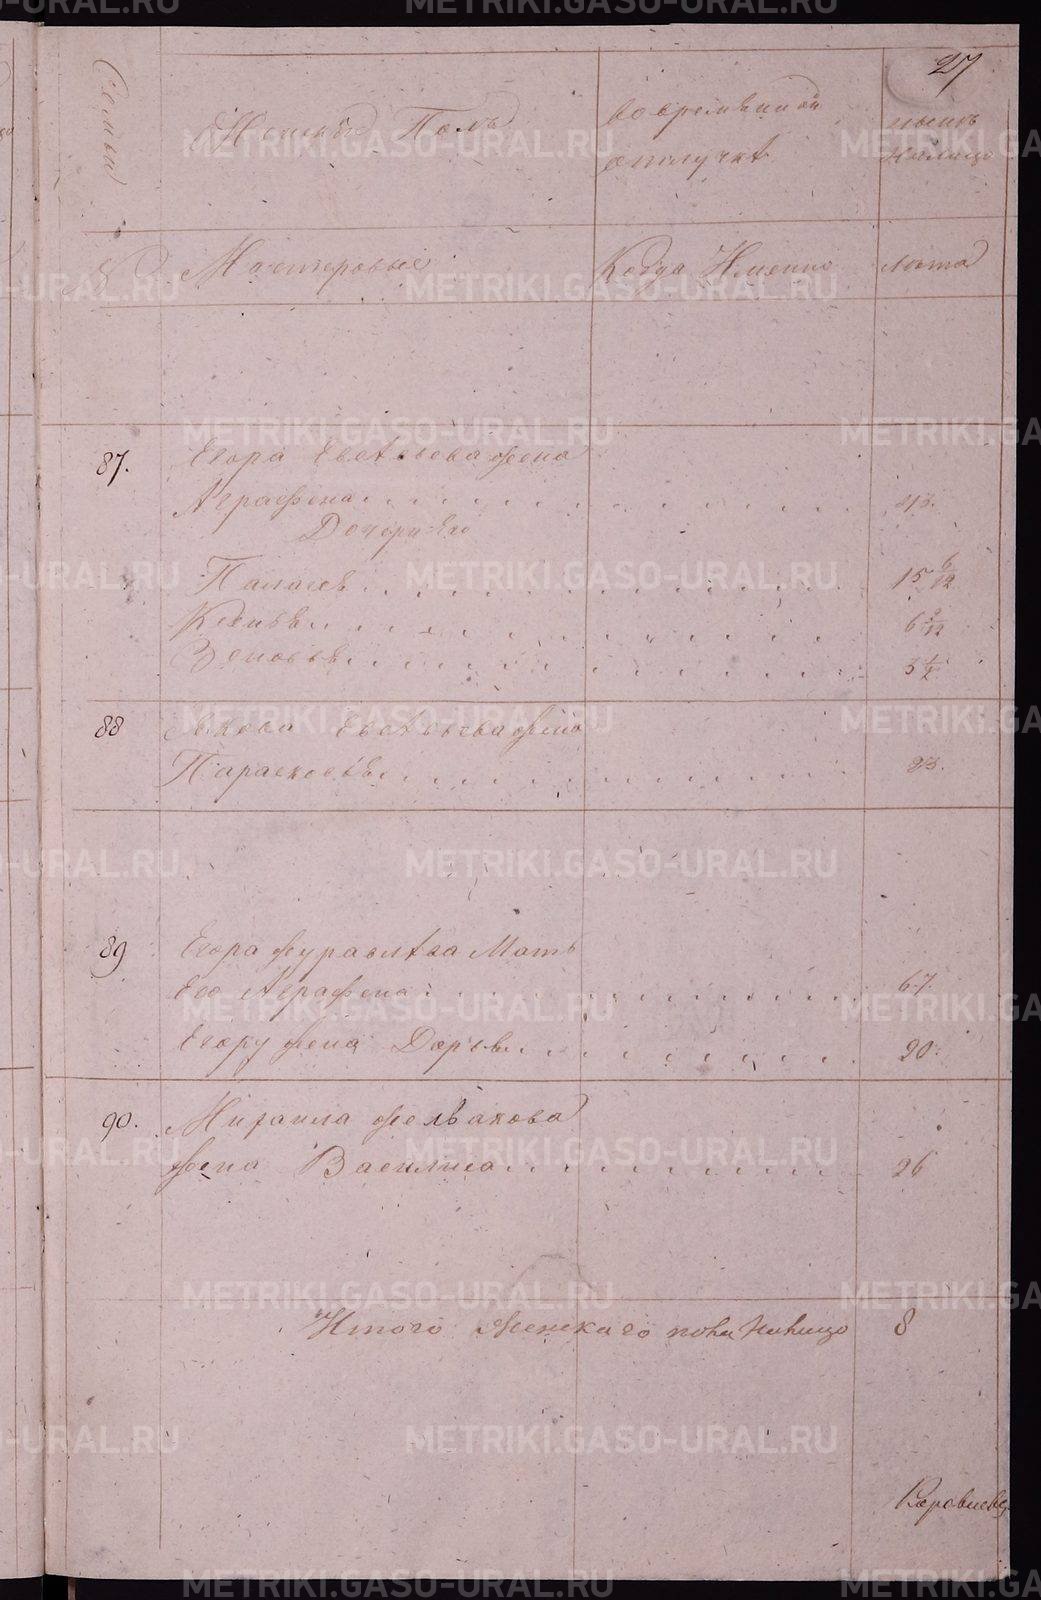 27
Семьи
Женский Полъ
во временной
отлучке
ныне
на лицо
№
Мастеровые
Когда Именно
лета
87.
Егора Евсеева жена
Аграфена
43.
Дочери Его
Палагея 15 6/12
Ксенья 6
Зеновья 3 1/2
88
Якова Евсеева жена
Парасковья 23.
89
Егора Журавлева Мать
Его Аграфена 67.
Егору жена Дарья 20.
90.
Михаила
жена Василиса 26
Итого женскаго пола Налицо 8
METRIKI.GASO-URAL.RU